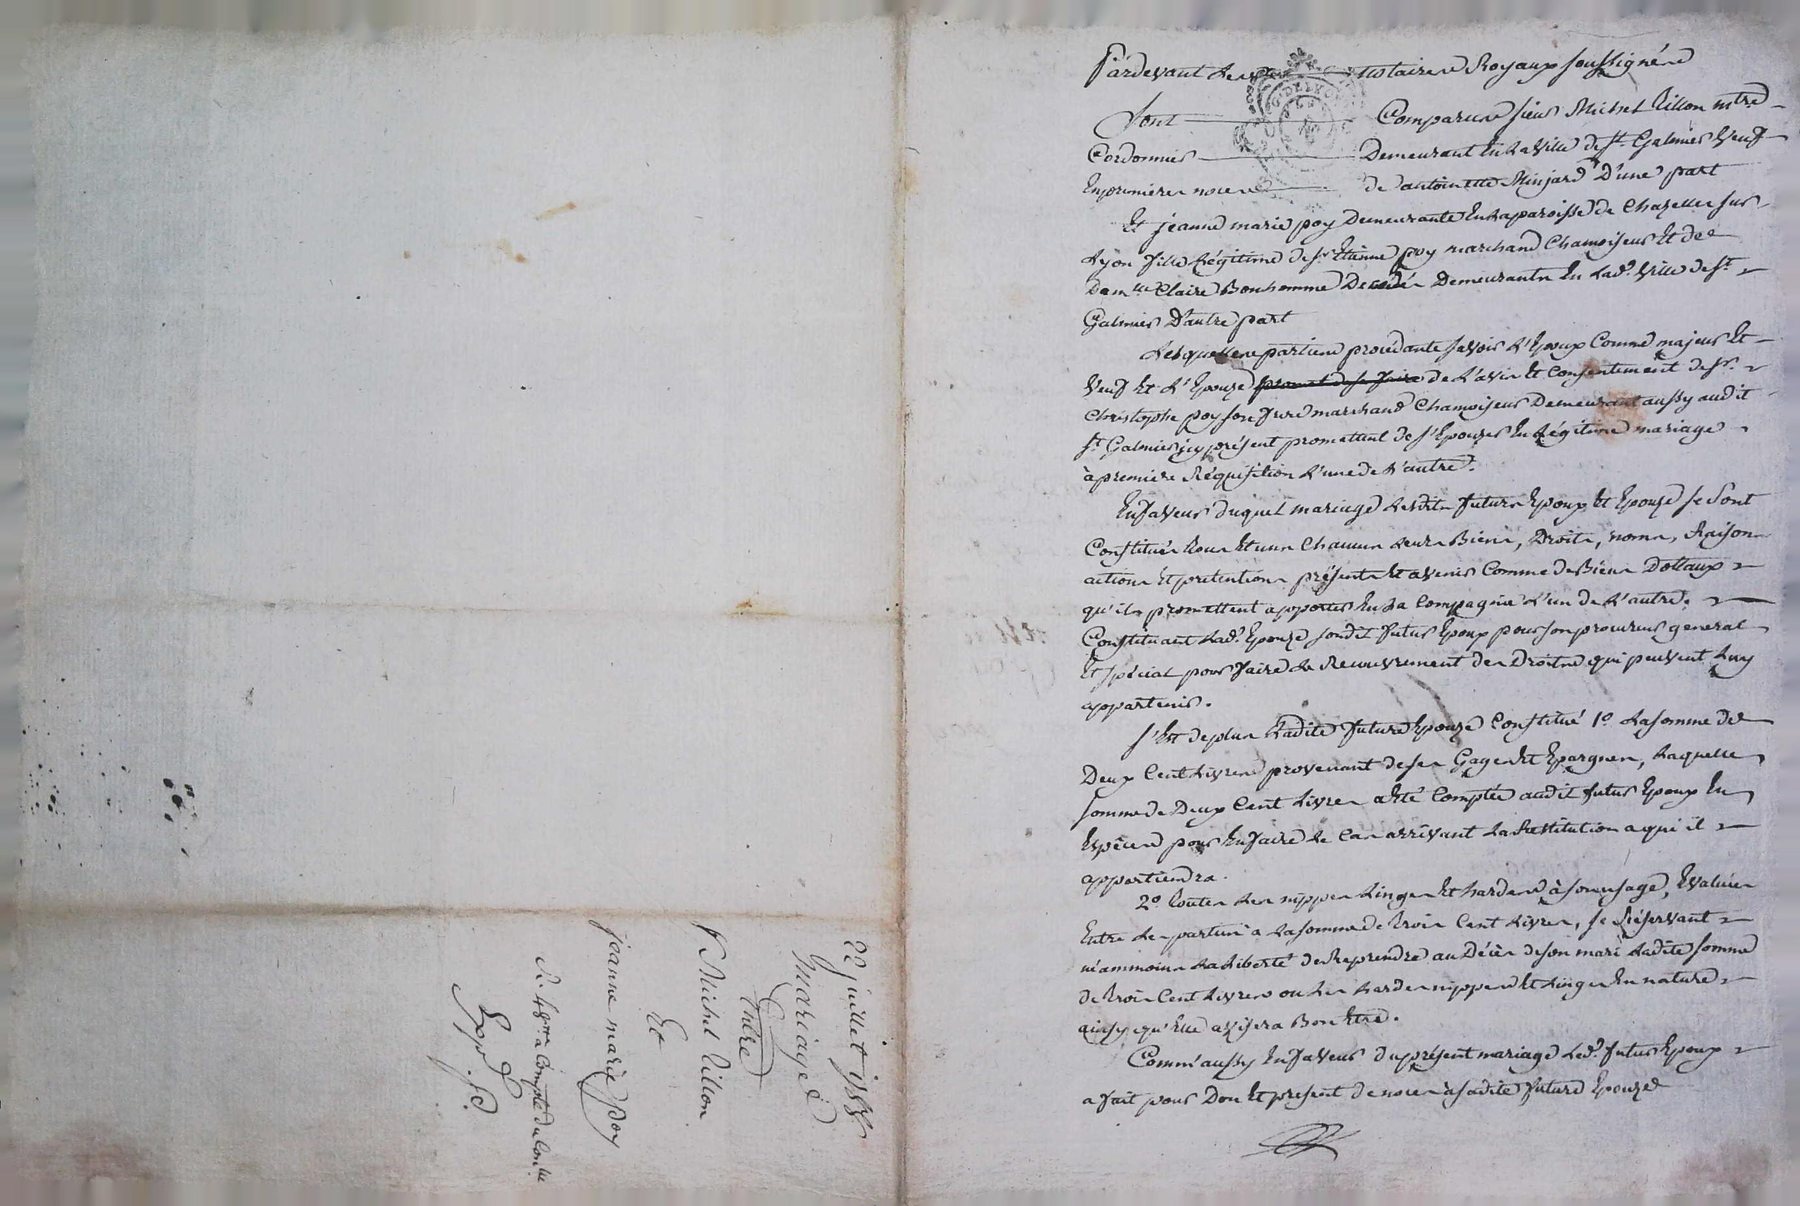 Pardevant les notaires Royaux soussignés
Sont Comparus sieur Michel Villon mtre
Cordonnier Demeurant En la Ville de St Galmier Veuf
En premieres noces de antoinette Minjard D'une part
Et jeanne marie poy Demeurante En la paroisse de Chazelles sur
Lyon fille Légitime de sr Etienne poy marchand Chamoiseur Et de
Damlle Claire Bonhomme Demeurants En lad. Ville de St
Galmier D'autre part
Lesquelles parties procédants savoir L'Epoux Comme majeur Et
Veuf Et L'Epouze de L'avis Et Consentement de sr
Christophe poy son frere marchand Chamoiseur Demeurant aussy audit
St Galmier icy présent promettent de s'Epouzer En Légitime mariage
à premiere Réquisition L'une de L'autre.
En faveur duquel mariage Lesdits futurs Epoux Et Epouze se sont
Constitués tous Et uns Chacuns Leurs Biens, Droits, noms, Raisons
actions Et pretentions présents Et avenir Comme de Biens Dottaux
qu'ils promettent apporter En La Compagnie L'un de L'autre.
Constituant Lad. Epouze sondit futur Epoux pour son procureur general
Et spécial pour faire Le Recouvrement des Droits qui peuvent Luy
appartenir.
s'Est de plus Ladite future Epouze Constitué 1o La somme de
Deux Cent Livres provenant de ses Gages Et Epargnes, Laquelle
somme de Deux Cent Livres a Eté Comptée audit futur Epoux En
Espèces pour En faire Le Cas arrivant La Restitution a qui il
appartiendra.
2o Toutes Les nippes Linges Et hardes à son usage, Evaluées
Entre Les parties à La somme de Trois Cent Livres, se Réservant
néammoins La Liberté de Reprendre au Décès de son mari Ladite somme
de Trois Cent Livres ou Les hardes nippes Et Linges En nature
ainsy qu'Elle avisera Bon Etre.
Comm'aussy En faveur du présent mariage Led. futur Epoux
a fait pour Don Et présent de noces à sadite future Epouze
22 juillet 1788
Mariage
Entre
Sr Michel Villon
Et
jeanne marie poy